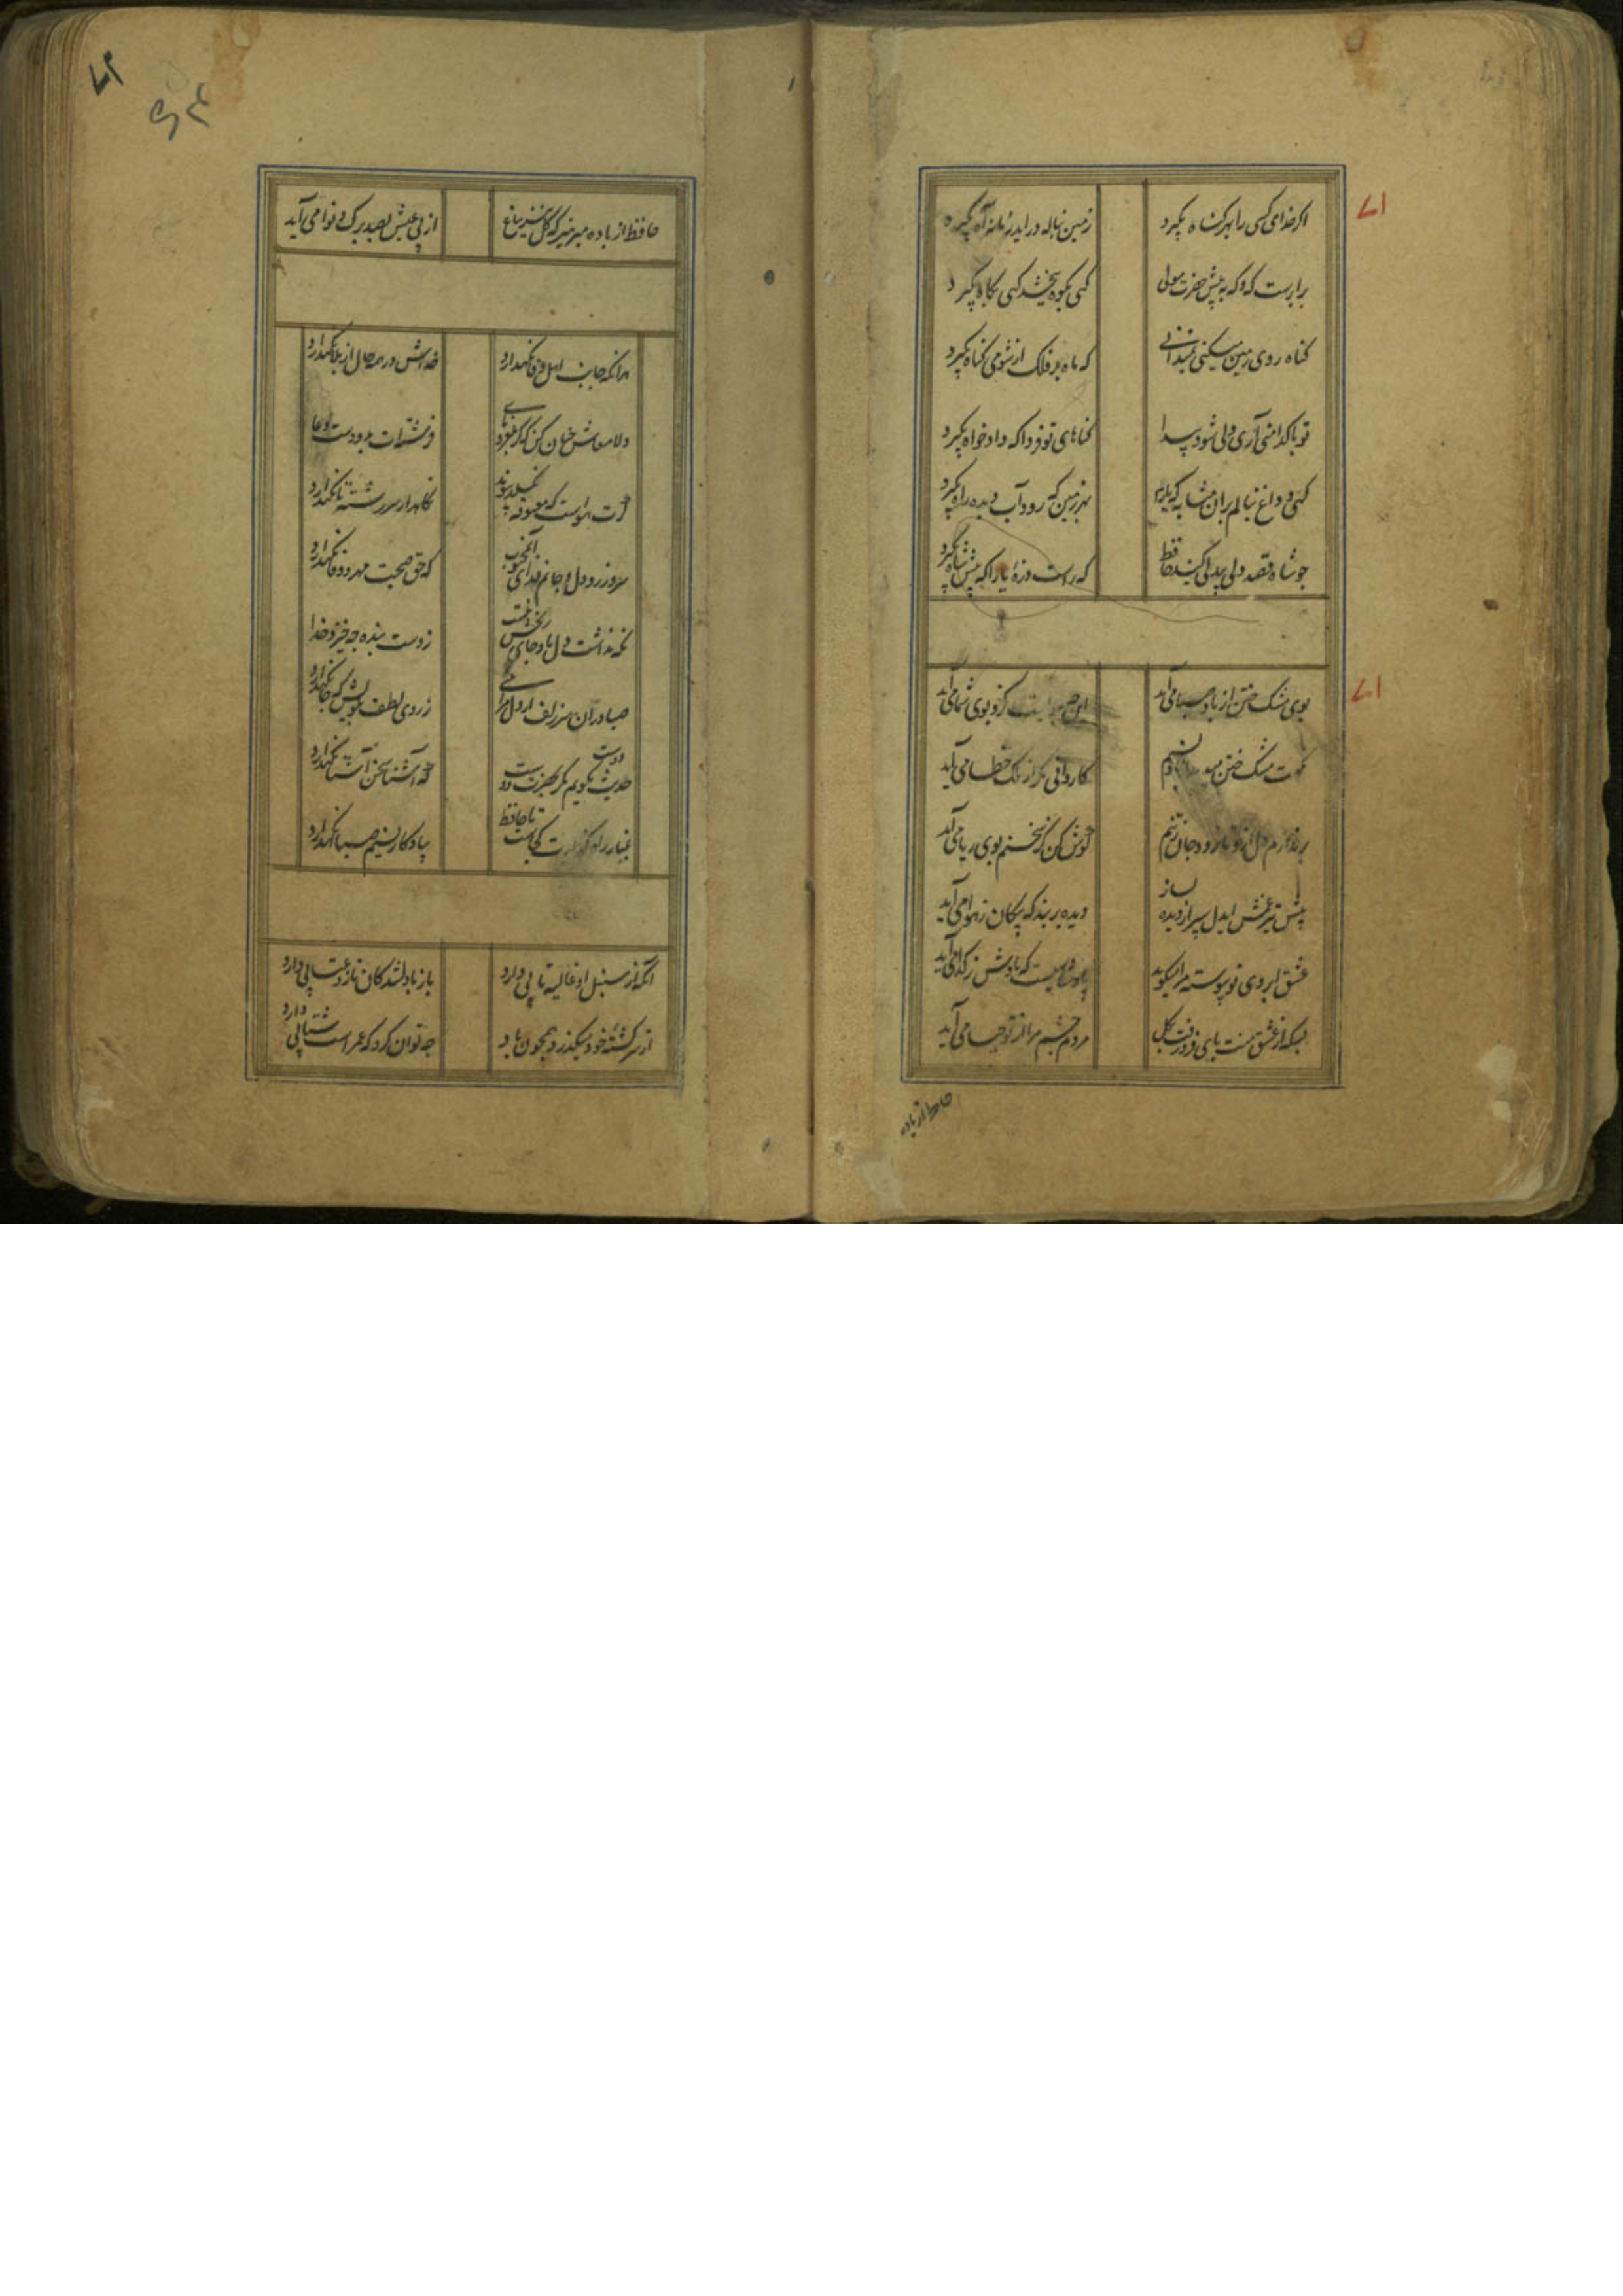 اگر خدای کسی را بهر گناه بگیرد
زمین بناله درآید زمانه آه بگیرد
برابرست که و که به پیش حضرت مولی
گهی بکوه ببخشد گهی بکاه بگیرد
گناه روی زمین میکنی نمیدانی
که ماه بر فلک از شومی گناه بگیرد
تو پاکدامنی آری ولی شود پیدا
گناهای تو فردا که دادخواه بگیرد
که یار
بهر زمین که رود آب دیده راه بگیرد
چو شاه قصد دلی بیدلی کند حافظ
که راست زهره یارا که پیش شاه بگیرد
بوی مشک ختن از باد صبا می آید
این چه بادیست کزو بوی شما می آید
نکهت مشک ختن میدمد
کاروانی مگر از ملک خطا می آید
گوش کن کز سخنم بوی ریا می آید
پیش تیر غمش ایدل سپر از دیده بساز
دیده بربند که پیکان ز هوا می آید
عشق ابروی تو پیوسته مرا میگوید
پادشاهیست که یادش ز گدا می آید
بسکه از عشق منت پای فرو رفت بگل
مردم چشم مرا از تو حیا می آید
حافظ از باده
حافظ از باده مپرهیز که گل نیز بباغ
از پی عیش بصد برگ و نوا می آید
هر آنکه جانب اهل وفا نگهدارد
خداش در همه حال از بلا نگهدارد
دلا معاش چنان کن که گر بلغزد پای
فرشته ات بدو دست دعا
گرت هواست که معشوقه نگسلد پیوند
نگاهدار سررشته تا نگهدارد
سر و زر و دل و جانم فدای آن محبوب
که حق صحبت مهر و وفا نگهدارد
نگه نداشت دل ما و جای رنجش نیست
ز دست بنده چه خیزد خدا
صبا در آن سر زلف ار دل مرا بینی
ز روی لطف بگویش که جا نگهدارد
حدیث دوست نگویم مگر بحضرت دوست
که آشنا سخن آشنا نگهدارد
غبار راهگذارت کجاست تا حافظ
بیادگار نسیم صبا نگهدارد
آنکه از سنبل او غالیه تابی دارد
باز با دلشدگان ناز و عتابی دارد
از سر کشته خود میگذرد همچون باد
چه توان کرد که عمر است شتابی دارد